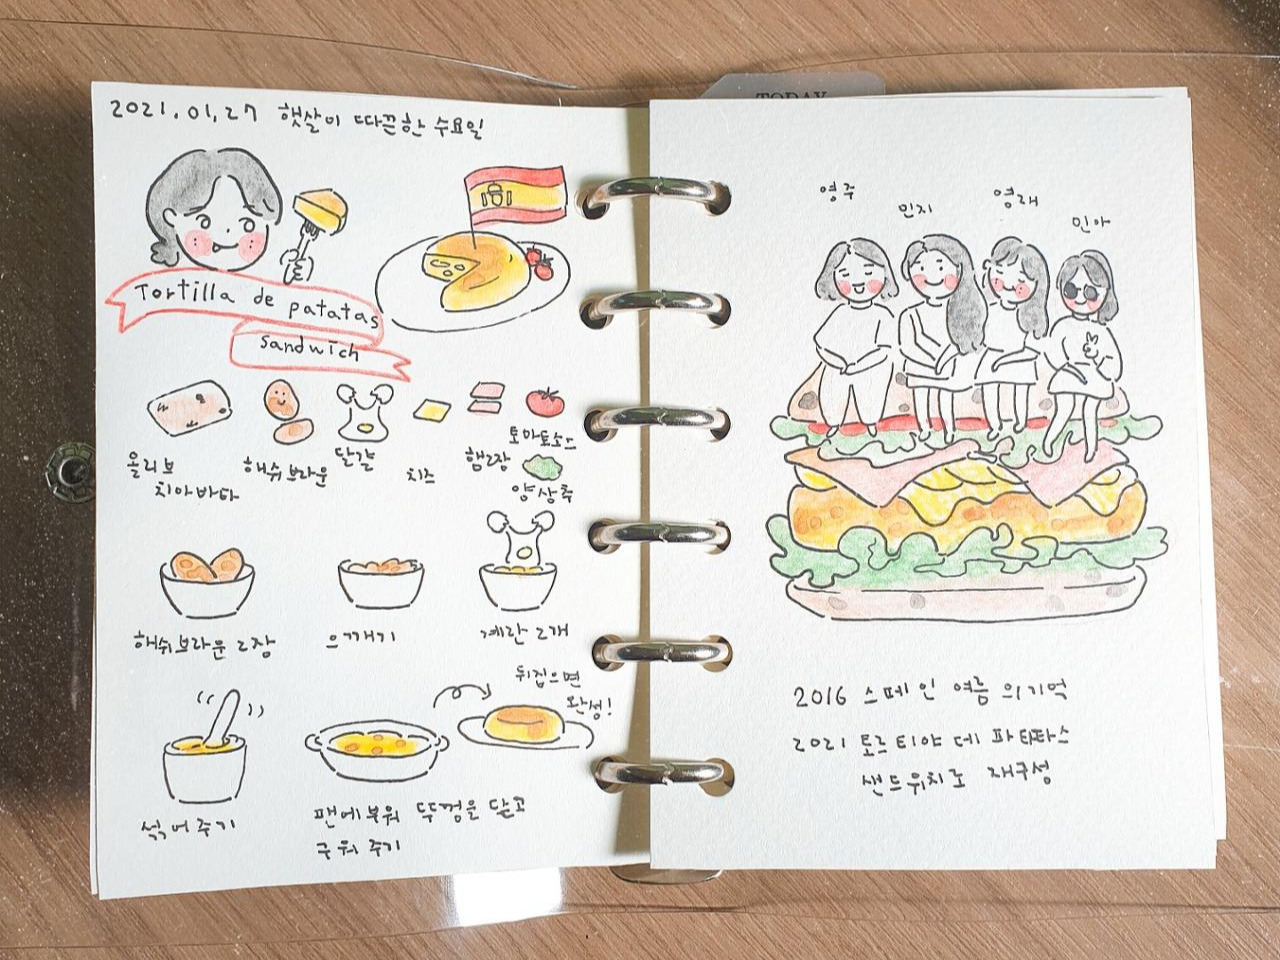 TODAY
2021.01.27 햇살이 따끈한 수요일
Tortilla de patatas
sandwich
올리브
치아바타
해쉬브라운
달걀
치즈
햄2장
토마토소스
양상추
해쉬브라운 2장
으깨기
계란 2개
섞어주기
팬에 부워 뚜껑을 닫고
구워 주기
뒤집으면
완성!
영주
민지
영래
민아
2016 스페인 여름의 기억
2021 토르티야 데 파타타스
샌드위치로 재구성